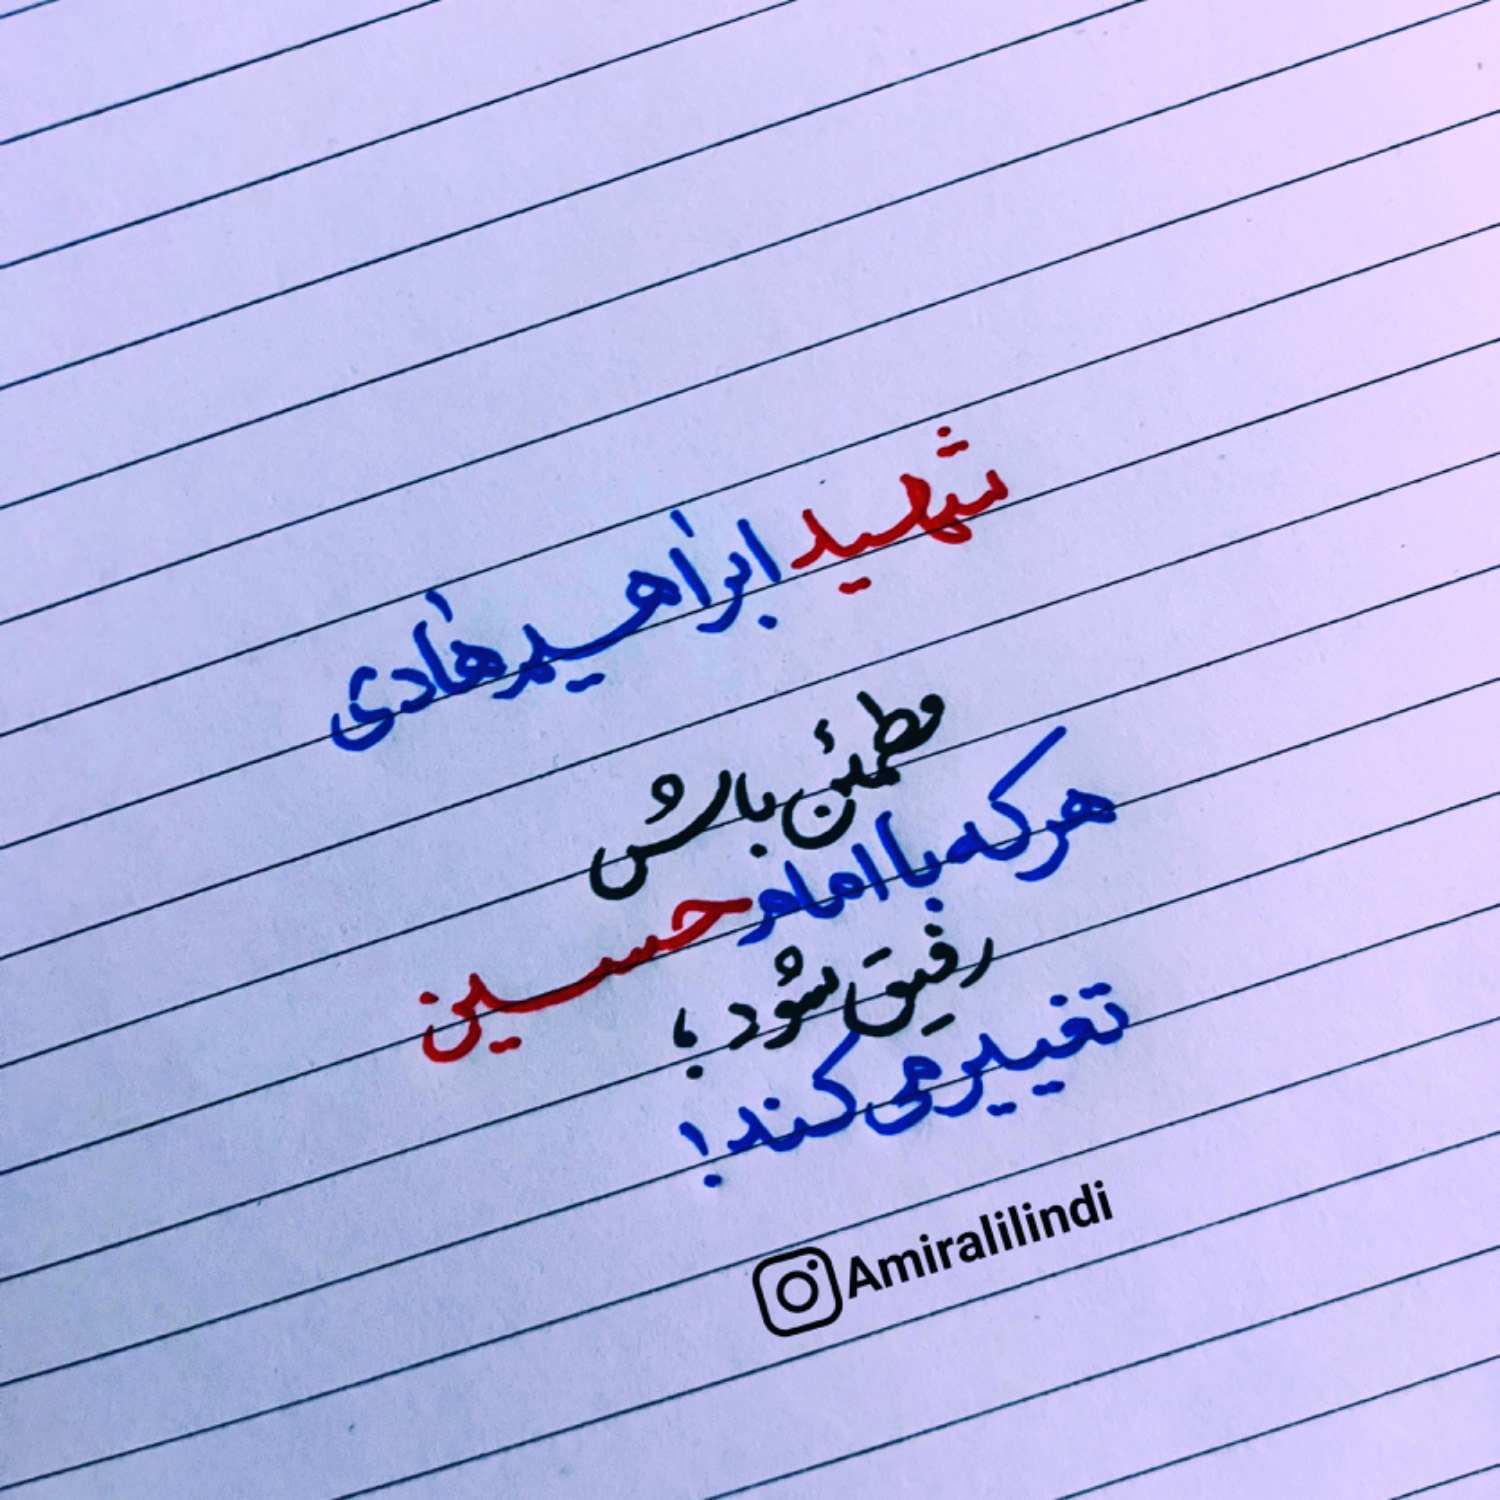 شهید ابراهیم هادی
مطمئن باش
هر که با امام حسین
رفیق شود؛
تغییر می کند!
Amiralilindi